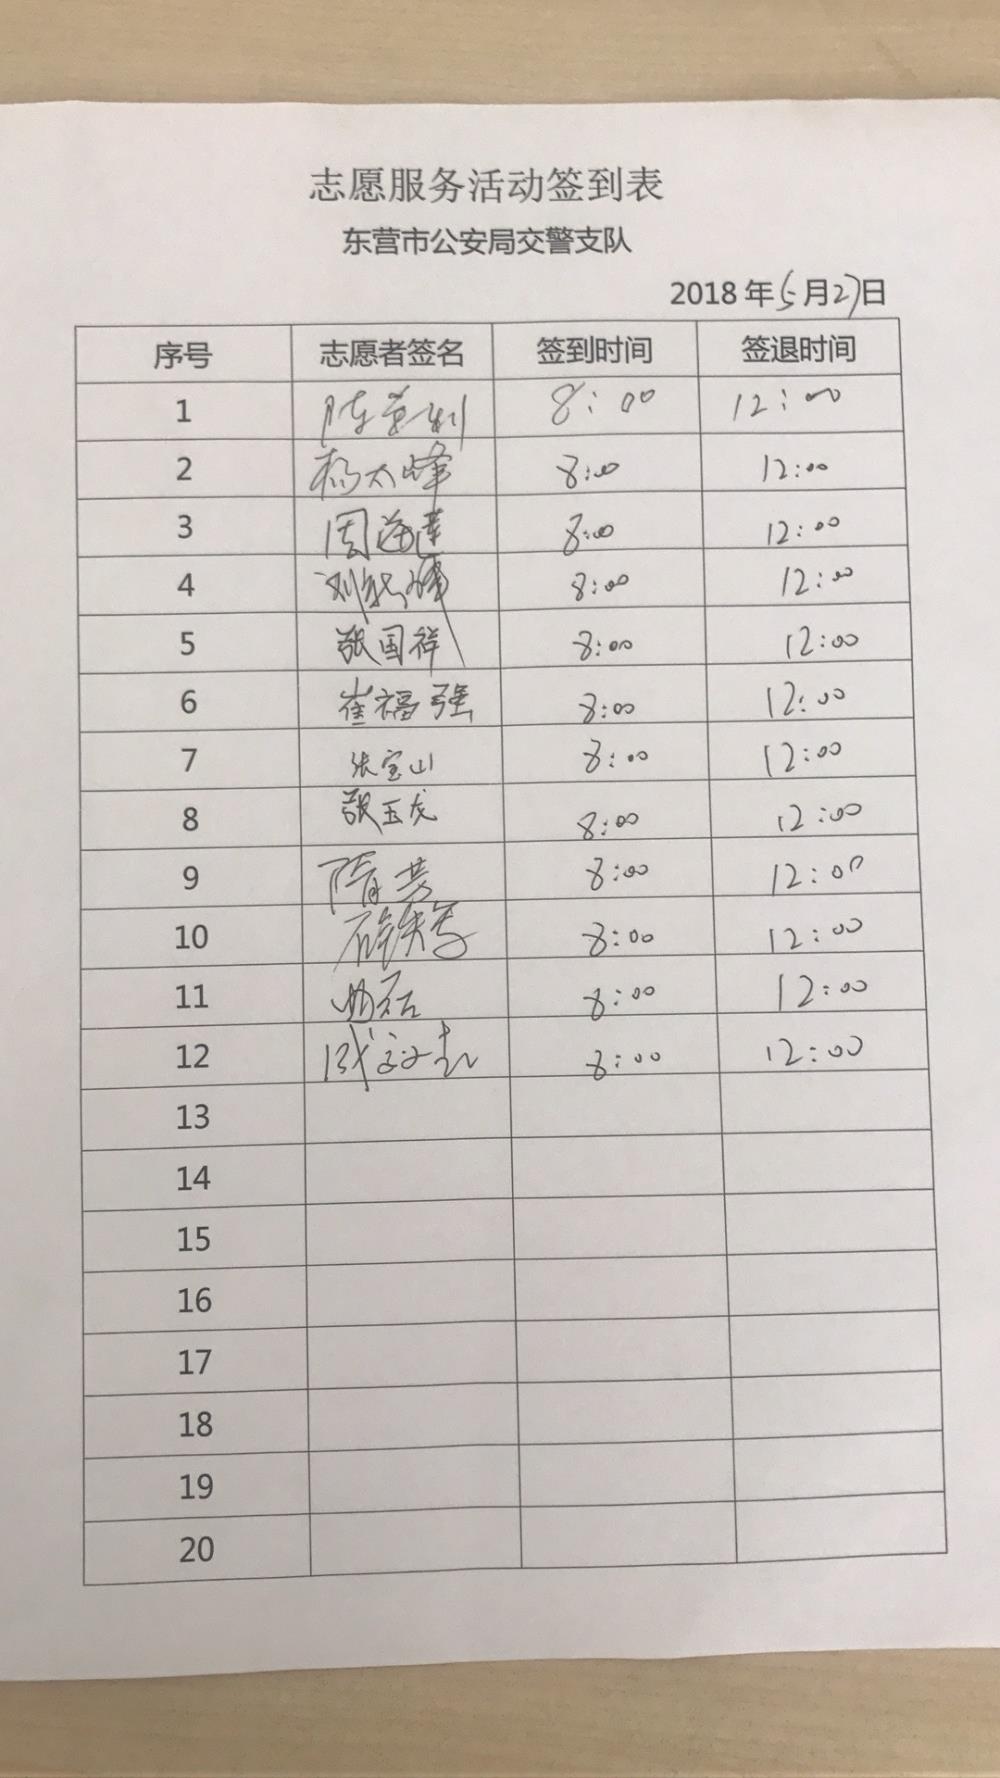 志愿服务活动签到表
东营市公安局交警支队
2018年5月27日
序号 志愿者签名 签到时间 签退时间
1 陈 8:00 12:00
2 杨大峰 8:00 12:00
3 周海莲 8:00 12:00
4 刘 8:00 12:00
5 张国祥 8:00 12:00
6 崔福强 8:00 12:00
7 张宝山 8:00 12:00
8 张玉龙 8:00 12:00
9 隋芳 8:00 12:00
10 8:00 12:00
11 8:00 12:00
12 8:00 12:00
13
14
15
16
17
18
19
20